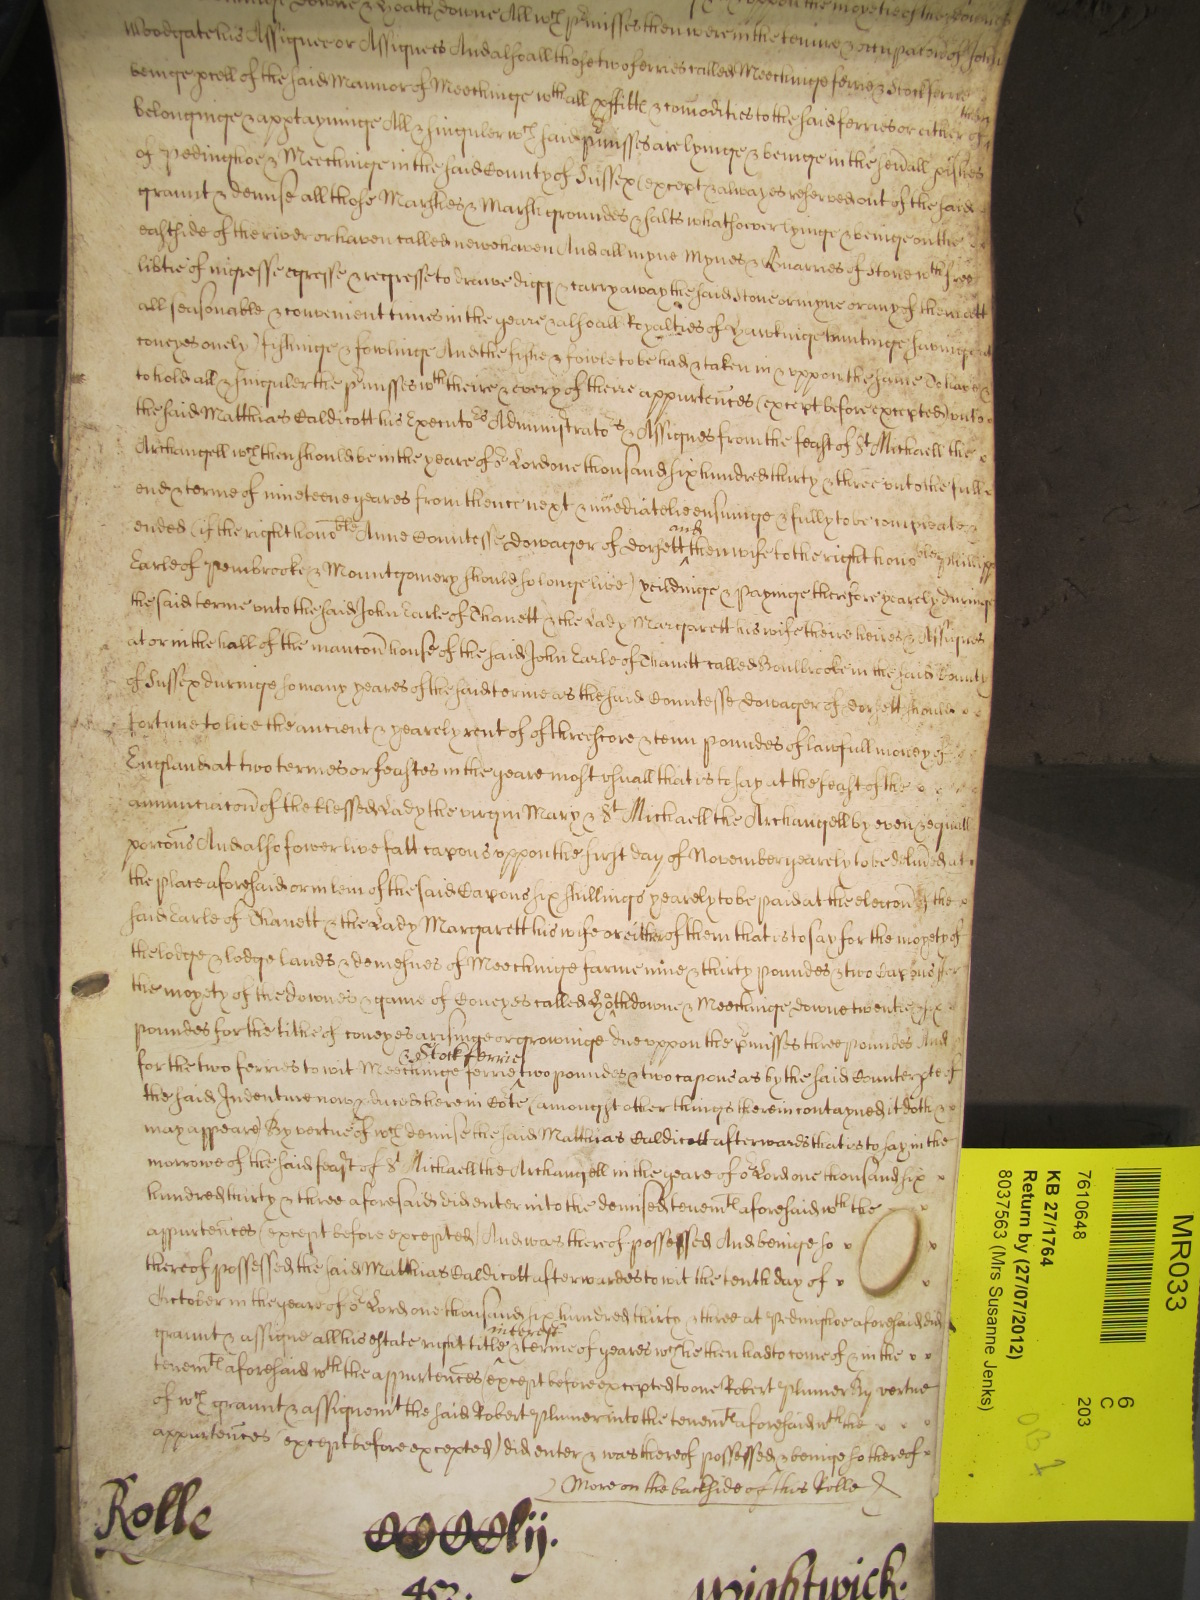 downe & downe All wch pmisses then were in the tenure & occupacon of John
Woodgate his Assignee or Assignees And also all those two ferries called Meechinge ferrie & Stock ferrie
beinge pcell of the said Mannor of Meechinge wth all pffitte & comodities to the said ferries or either of them
belonginge & apptayninge All & singuler wch said pmisses are lyinge & beinge in the sevall pishes
of Pedinghoe & Meechinge in the said County of Sussex (except & alwayes reserved out of the said
graunt & demise all those Marshes & Marsh groundes & salts whatsoever lyinge & beinge on the
eastside of the river or haven called newehaven And all myne Mynes & Quarries of Stone wth free
libtie of ingresse egresse & regresse to drawe digg & carry away the said Stone or myne or any of them att
all seasonable & convenient times in the yeare & also all Royalties of Hawkinge huntinge
coneyes onely) fishinge & fowlinge And the fishe & fowle to be had & taken in & uppon the same To have &
to hold all & singuler the pmisses wth theire & every of theire appurtences (except before excepted) unto
the said Matthias Caldicott his Executors Administrators & Assignes from the feast of St Michaell the
Archangell wch then should be in the yeare of or Lord one thousand six hundred thirty & three unto the full
end & terme of nineteene yeares from thence next & imediatelie ensuinge & fully to be compleate &
ended (if the right honoble Anne Countesse Dowager of Dorsett and then wife to the right honoble Phillipp
Earle of Pembrooke & Mountgomery should so longe live) yeildinge & payinge therefore yearely duringe
the said terme unto the said John Earle of Thanett & the Lady Margarett his wife theire heires & Assignes
at or in the hall of the mancon house of the said John Earle of Thanett called Boulbrooke in the said County
of Sussex duringe so many yeares of the said terme as the said Countesse Dowager of Dorsett should
fortune to live the ancient & yearely rent of of threescore & tenn poundes of lawfull money of
England at two termes or feastes in the yeare most usuall that is to say at the feast of the
annunciacon of the blessed Lady the virgin Mary & St Michaell the Archangell by even & equall
porcons And also fower live fatt capons uppon the first day of November yearely to be delived at
the place aforesaid or in lein of the said Capons six shillings yearely to be paid at the eleccon of the
said Earle of Thanett & the Lady Margarett his wife or either of them that is to say for the moyety of
the lodge & lodge lands & demesnes of Meechinge farme nine & thirty poundes & two Capons for
the moyety of the downes & game of Coneyes called Hothdowne & Meechinge downe twentie & six
poundes for the tithe of coneyes arisinge or growinge due uppon the pmisses three poundes And
for the two ferries to wit Meechinge ferrie & Stock ferrie two poundes & two capons as by the said Counterpte of
the said Indenture now pduced here in Cote (amongst other things therein contayned it doth &
may appeare) By vertue of wch demise the said Matthias Caldicott afterwards that is to say in the
morrowe of the said feast of St Michaell the Archangell in the yeare of or Lord one thousand six
hundred thirty & three aforesaid did enter into the demised tenemts aforesaid wth the
appurtences (except before excepted) And was thereof possessed And beinge so
thereof possessed the said Matthias Caldicott afterwardes to wit the tenth day of
October in the yeare of or Lord one thousand six hundred thirty & three at Pedinghoe aforesaid did
graunt & assigne all his estate right title interest & terme of yeares wch he then had to come of & in the
tenemts aforesaid wth the appurtences (except before excepted to one Robert Plumer By vertue
of wch graunt & assignemt the said Robert Plumer into the tenemts aforesaid wth the
appurtences (except before excepted) did enter & was thereof possessed & beinge so thereof
More on the backside of this Rolle
Rolle
CCCClij.
452.
Wightwick.
MR033
6
C
203
7610648
KB 27/1764
Return by (27/07/2012)
8037563 (Mrs Susanne Jenks)